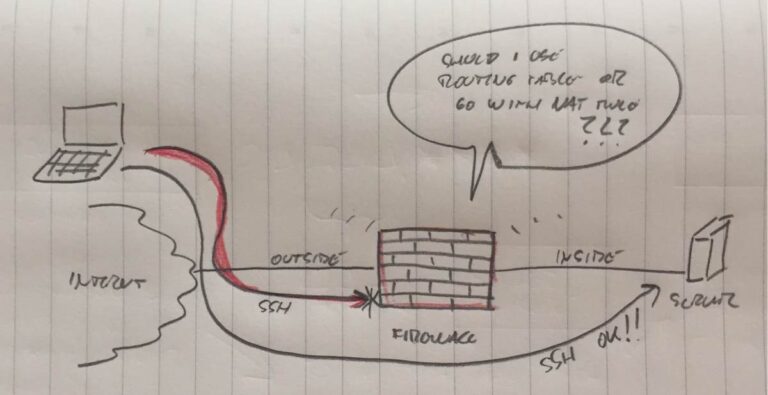 SHOULD I USE
ROUTING TABLE OR
GO WITH NAT RULE
???
INTERNET
OUTSIDE
INSIDE
SSH
FIREWALL
SERVER
SSH OK!!